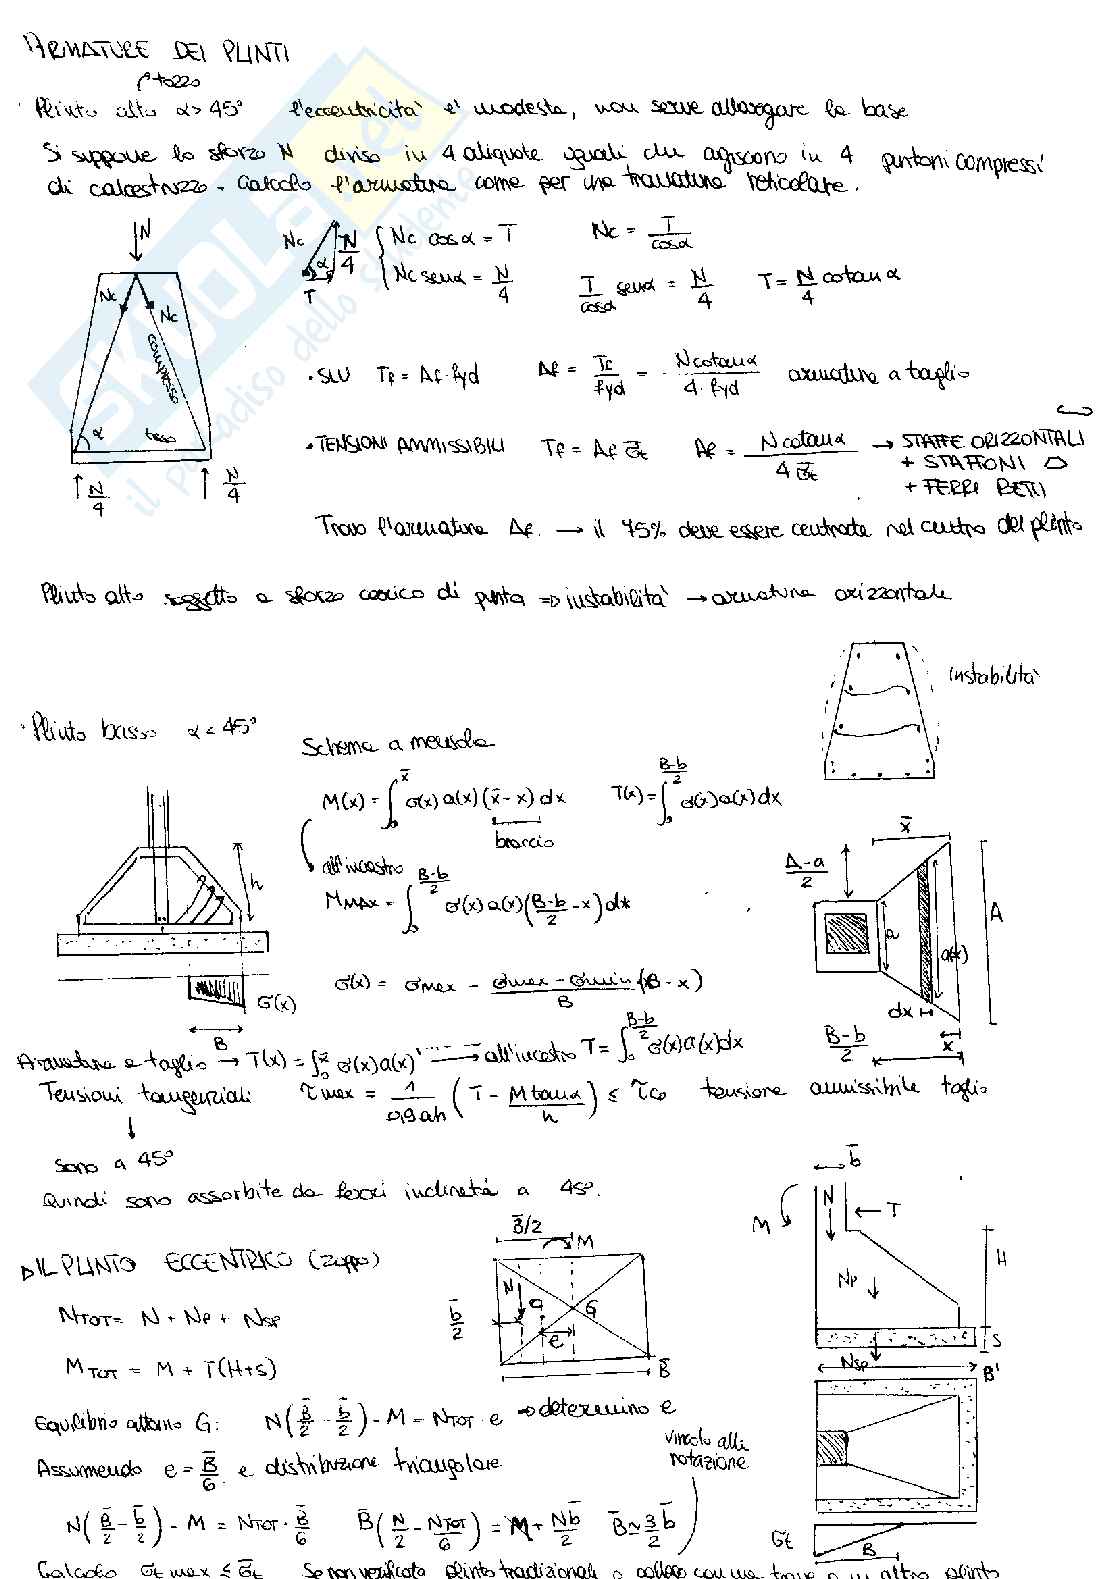 ARMATURE DEI PLINTI
tozzo
Plinto alto α > 45° l'eccentricità è modesta, non serve allargare la base
Si suppone lo sforzo N diviso in 4 aliquote uguali che agiscono in 4 puntoni compressi
di calcestruzzo - Calcolo l'armatura come per una travatura reticolare.
N
Nc N/4 α T { Nc cosα = T Nc = T/cosα
Nc senα = N/4 T/cosα senα = N/4 T = N/4 cotanα
Nc Nc compresso α teso
N/4 N/4
• SLU Tf = Af · fyd Af = Tf/fyd = N cotanα / 4 · fyd armatura a taglio
• TENSIONI AMMISSIBILI Tf = Af σ̄t Af = N cotanα / 4 σ̄t → STAFFE ORIZZONTALI
+ STAFFONI
+ FERRI RETTI
Trovo l'armatura Af → il 75% deve essere centrata nel centro del plinto
Plinto alto soggetto a sforzo carico di punta ⇒ instabilità → armatura orizzontale
instabilità
Plinto basso α < 45°
Schema a mensola
M(x) = ∫₀^x̄ σ(x) a(x) (x̄ - x) dx T(x) = ∫₀^(B-b)/2 σ(x) a(x) dx
braccio
all'incastro
M MAX = ∫₀^(B-b)/2 σ(x) a(x) (B-b/2 - x) dx
h
x̄
A-a/2 A a a(x) dx
B-b/2 x
σ(x) = σmax - σmax - σmin/B (B - x)
σ(x)
B
Armatura a taglio → T(x) = ∫₀^x̄ σ(x) a(x) → all'incastro T = ∫₀^(B-b)/2 σ(x) a(x) dx
Tensioni tangenziali τmax = 1/0,9ah (T - M tanα/h) ≤ τco tensione ammissibile taglio
sono a 45°
Quindi sono assorbite da ferri inclinati a 45°.
b̄
N T M H Np
IL PLINTO ECCENTRICO (zoppo)
B̄/2 M
N G e
b̄/2 B̄
NTOT = N + Np + NSP
M TOT = M + T(H+s)
S
NSP B'
Equilibrio attorno G: N(B̄/2 - b̄/2) - M = NTOT · e → determino e
Assumendo e = B̄/6 e distribuzione triangolare
vincolo alle
rotazione
N(B̄/2 - b̄/2) - M = NTOT · B̄/6 B̄(N/2 - NTOT/6) = M + Nb̄/2 B̄ ≃ 3/2 b̄
σt B
Calcolo σt max ≤ σ̄t Se non verificato plinto tradizionale o collego con una trave a un altro plinto
SKUOLA.eu
il paradiso dello studente